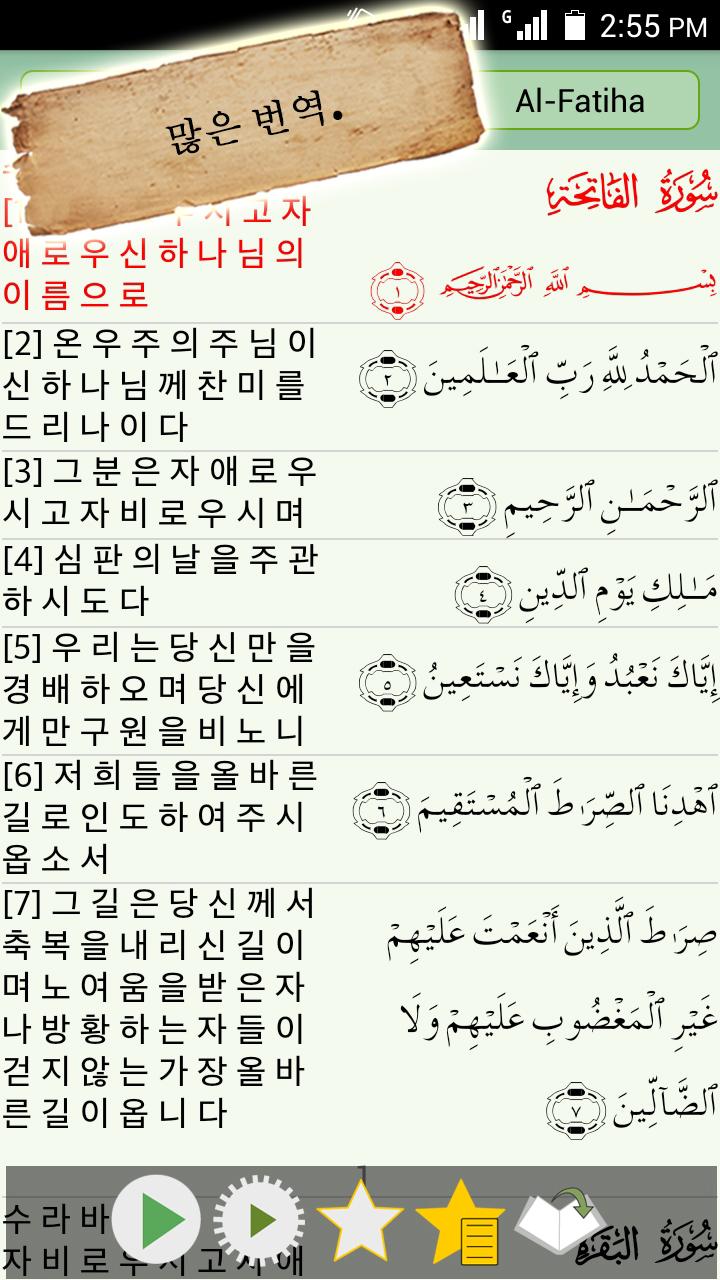 G 2:55 PM
많은 번역.
Al-Fatiha
سُورَةُ الفَاتِحَةِ
시 고 자
애 로 우 신 하 나 님 의
이 름 으 로
بِسْمِ ٱللَّهِ ٱلرَّحْمَٰنِ ٱلرَّحِيمِ ١
[2] 온 우 주 의 주 님 이
신 하 나 님 께 찬 미 를
드 리 나 이 다
ٱلْحَمْدُ لِلَّهِ رَبِّ ٱلْعَـٰلَمِينَ ٢
[3] 그 분 은 자 애 로 우
시 고 자 비 로 우 시 며
ٱلرَّحْمَـٰنِ ٱلرَّحِيمِ ٣
[4] 심 판 의 날 을 주 관
하 시 도 다
مَـٰلِكِ يَوْمِ ٱلدِّينِ ٤
[5] 우 리 는 당 신 만 을
경 배 하 오 며 당 신 에
게 만 구 원 을 비 노 니
إِيَّاكَ نَعْبُدُ وَإِيَّاكَ نَسْتَعِينُ ٥
[6] 저 희 들 을 올 바 른
길 로 인 도 하 여 주 시
옵 소 서
ٱهْدِنَا ٱلصِّرَٰطَ ٱلْمُسْتَقِيمَ ٦
[7] 그 길 은 당 신 께 서
축 복 을 내 리 신 길 이
며 노 여 움 을 받 은 자
나 방 황 하 는 자 들 이
걷 지 않 는 가 장 올 바
른 길 이 옵 니 다
صِرَٰطَ ٱلَّذِينَ أَنْعَمْتَ عَلَيْهِمْ
غَيْرِ ٱلْمَغْضُوبِ عَلَيْهِمْ وَلَا
ٱلضَّآلِّينَ ٧
1
수 라 바
자 비 로 우 시 고 자 애
سُورَةُ البَقَرَةِ